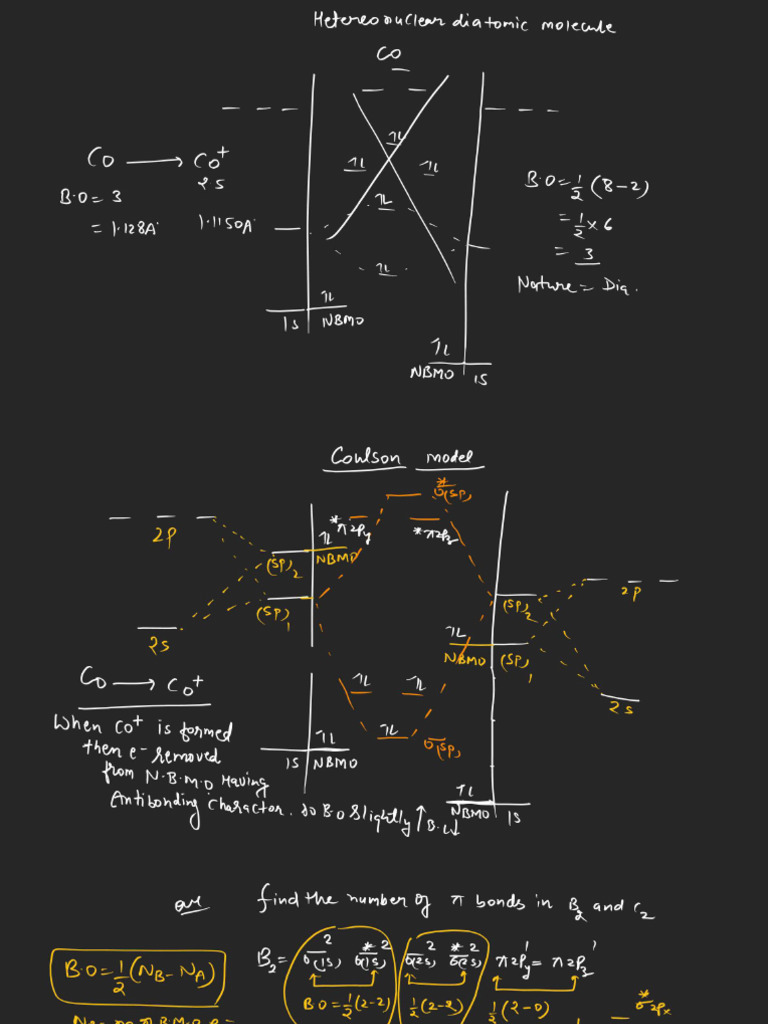 Heteronuclear diatomic molecule
CO
CO ⟶ CO⁺
2s
B.O = 3
= 1.128A° 1.1150A°
B.O = 1/2 (8-2)
= 1/2 × 6
= 3
Nature = Dia.
1s NBMO
NBMO 1s
Coulson model
σ*(sp)
2p
*π2py *π2pz
(sp)₂ NBMO
(sp)₁
2s
(sp)₂ 2p
NBMO (sp)₁
2s
CO ⟶ CO⁺
When CO⁺ is formed
then e- removed
from N.B.M.O Having
Antibonding character. So B.O slightly ↑ B.L↓
1s NBMO
σ(sp)
NBMO 1s
Que find the number of π bonds in B₂ and C₂
B₂ = σ(1s)² σ*(1s)² σ(2s)² σ*(2s)² π2py¹ = π2pz¹
B.O = 1/2 (N_B - N_A)
B.O = 1/2 (2-2) 1/2 (2-2) 1/2 (2-0)
σ*2px